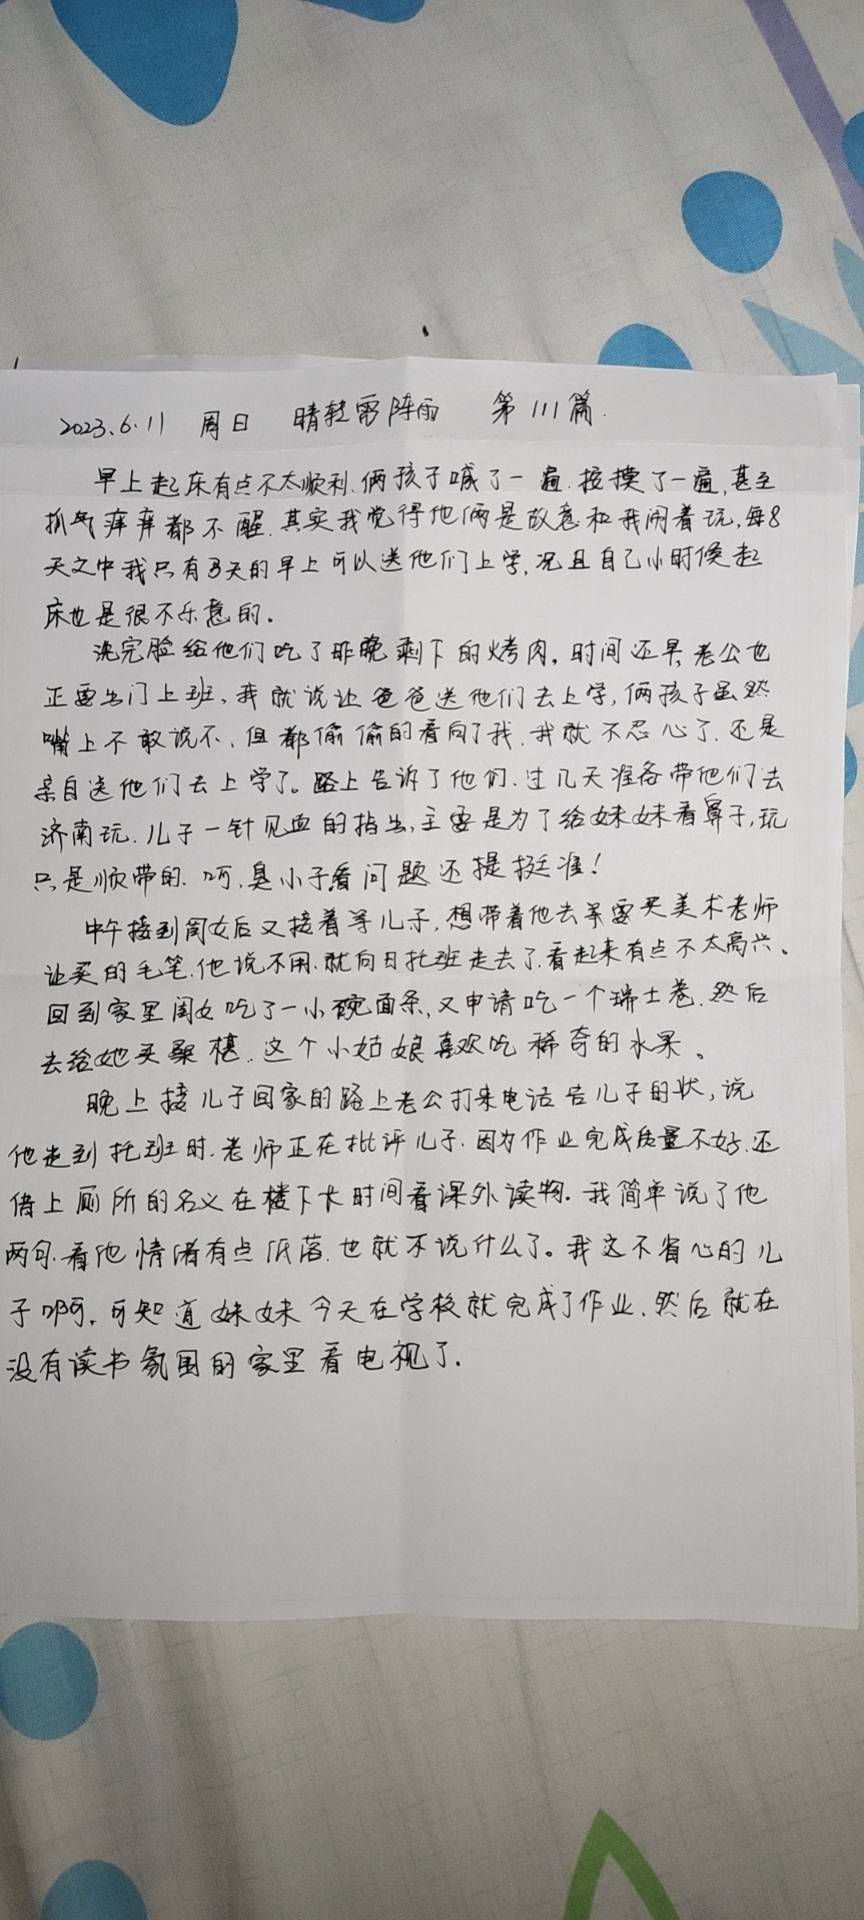 2023.6.11 周日 晴转雷阵雨 第111篇.
早上起床有点不太顺利.俩孩子喊了一遍.按摸了一遍,甚至
抓气痒痒都不醒.其实我觉得他俩是故意和我闹着玩,每8
天之中我只有3天的早上可以送他们上学,况且自己小时候起
床也是很不乐意的。
洗完脸给他们吃了昨晚剩下的烤肉,时间还早,老公也
正要出门上班,我就说让爸爸送他们去上学,俩孩子虽然
嘴上不敢说不,但都偷偷的看向了我.我就不忍心了.还是
亲自送他们去上学了。路上告诉了他们.过几天准备带他们去
济南玩.儿子一针见血的指出,主要是为了给妹妹看鼻子,玩
只是顺带的.呵,臭小子看问题还提挺准!
中午接到闺女后又接着等儿子,想带着他去买要买美术老师
让买的毛笔.他说不用.就向日托班走去了.看起来有点不太高兴、
回到家里闺女吃了一小碗面条,又申请吃一个瑞士卷.然后
去给她买桑椹.这个小姑娘喜欢吃稀奇的水果。
晚上接儿子回家的路上老公打来电话告儿子的状,说
他走到托班时.老师正在批评儿子.因为作业完成质量不好.还
借上厕所的名义在楼下长时间看课外读物.我简单说了他
两句.看他情绪有点低落.也就不说什么了。我这不省心的儿
子啊,可知道妹妹今天在学校就完成了作业.然后就在
没有读书氛围的家里看电视了.